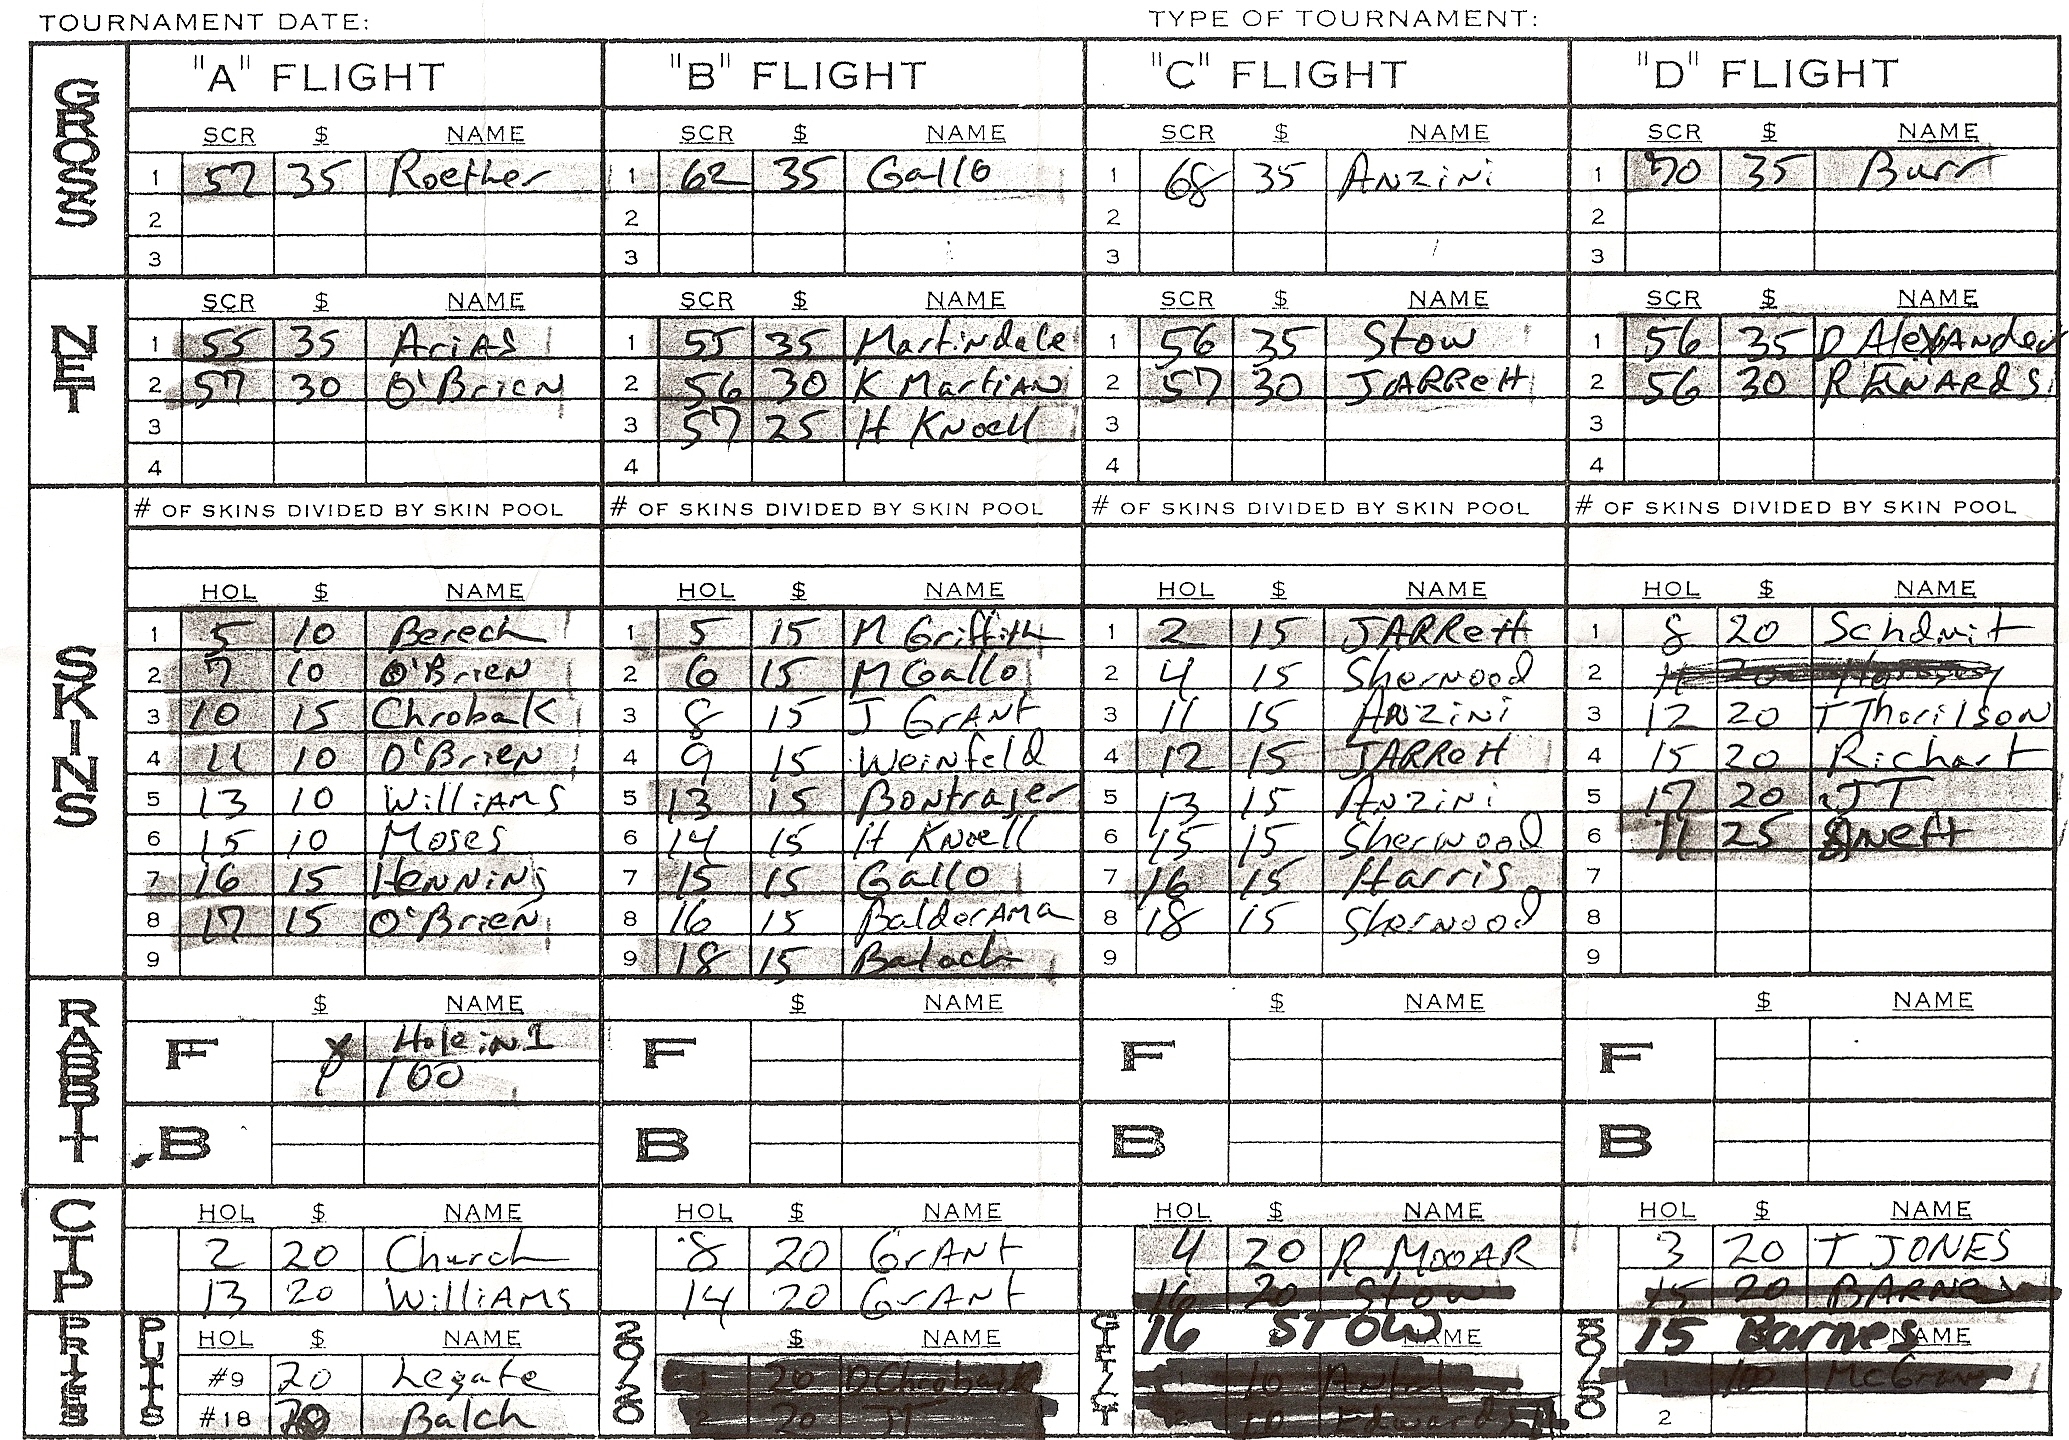 TOURNAMENT DATE: TYPE OF TOURNAMENT:
GROSS
"A" FLIGHT "B" FLIGHT "C" FLIGHT "D" FLIGHT
SCR $ NAME SCR $ NAME SCR $ NAME SCR $ NAME
1 57 35 Roether 1 62 35 Gallo 1 68 35 ANZiNi 1 70 35 Burr
2 2 2 2
3 3 3 3
NET
SCR $ NAME SCR $ NAME SCR $ NAME SCR $ NAME
1 55 35 AriAS 1 55 35 Martindale 1 56 35 Stow 1 56 35 D AlexANder
2 57 30 O'BrieN 2 56 30 K MartiAN 2 57 30 JARRett 2 56 30 R EdWARdS
3 3 57 25 H KNoell 3 3
4 4 4 4
SKINS
# OF SKINS DIVIDED BY SKIN POOL # OF SKINS DIVIDED BY SKIN POOL # OF SKINS DIVIDED BY SKIN POOL # OF SKINS DIVIDED BY SKIN POOL
HOL $ NAME HOL $ NAME HOL $ NAME HOL $ NAME
1 5 10 Berech 1 5 15 M Griffith 1 2 15 JARRett 1 8 20 Schdmit
2 7 10 O'BrieN 2 6 15 M Gallo 2 4 15 Sherwood 2 11 20
3 10 15 Chrobak 3 8 15 J GrANT 3 11 15 ANZiNi 3 12 20 T ThorilsoN
4 11 10 O'BrieN 4 9 15 Weinfeld 4 12 15 JARRett 4 15 20 Richart
5 13 10 WilliAMS 5 13 15 Bontrager 5 13 15 ANZiNi 5 17 20 JT
6 15 10 Moses 6 14 15 H KNoell 6 15 15 Sherwood 6 11 25
7 16 15 HeNNiNg 7 15 15 Gallo 7 16 15 Harris 7
8 17 15 O'BrieN 8 16 15 BalderAMA 8 18 15 Sherwood 8
9 9 18 15 9 9
RABBIT
$ NAME $ NAME $ NAME $ NAME
F Hole in 1 F F F
100
B B B B
CTP
HOL $ NAME HOL $ NAME HOL $ NAME HOL $ NAME
2 20 Church 8 20 GrANT 4 20 R MOOAR 3 20 T JONES
13 20 WilliAMS 14 20 GrANT 16 20 Stow 15 20 BARNes
PRIES PUTTS 20/20 50/50
HOL $ NAME $ NAME 16 STOW NAME 15 Barnes NAME
#9 20 Legate 1 20 D Chrobak 1 10 1 100
#18 20 Balch 2 20 JT 10 Edwards 2